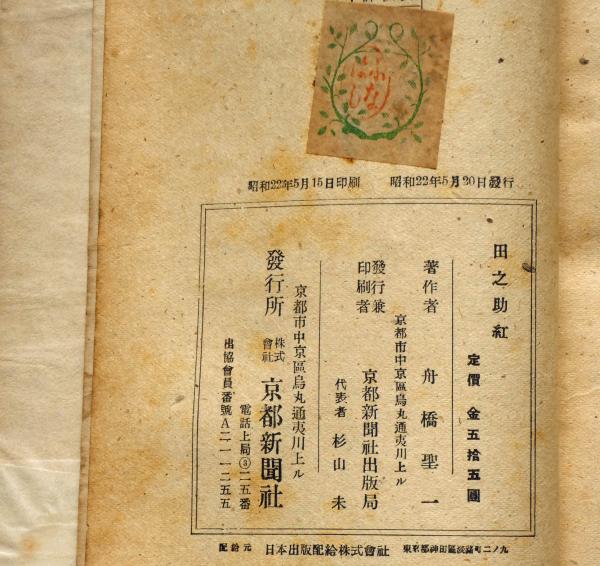 昭和22年5月15日印刷　昭和22年5月20日發行
田之助紅
定價　金五拾五圓
著作者　舟橋聖一
京都市中京區烏丸通夷川上ル
發行兼印刷者　京都新聞社出版局
代表者　杉山未
京都市中京區烏丸通夷川上ル
發行所　株式會社　京都新聞社
電話上局③二五番
出協會員番號A二一一二五五
配給元　日本出版配給株式會社　東京都神田區淡路町二ノ九